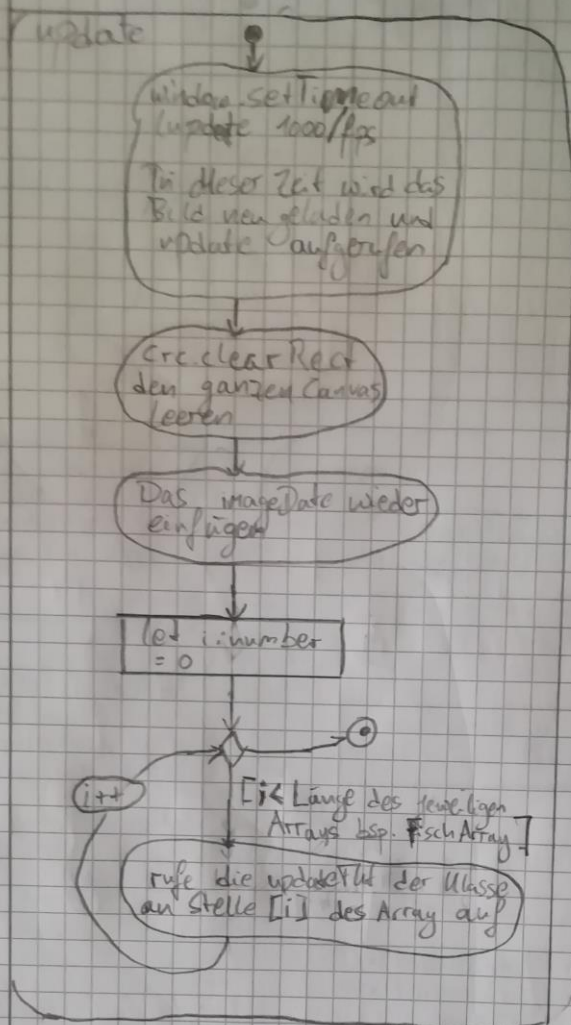 update
window.setTimeout
(update 1000/fps
In dieser Zeit wird das
Bild neu geladen und
update aufgerufen
crc.clearRect
den ganzen Canvas
leeren
Das imageData wieder
einfügen
let i:number
= 0
i++
[i< Länge des jeweiligen
Arrays bsp. FischArray]
rufe die update der Klasse
an Stelle [i] des Array auf